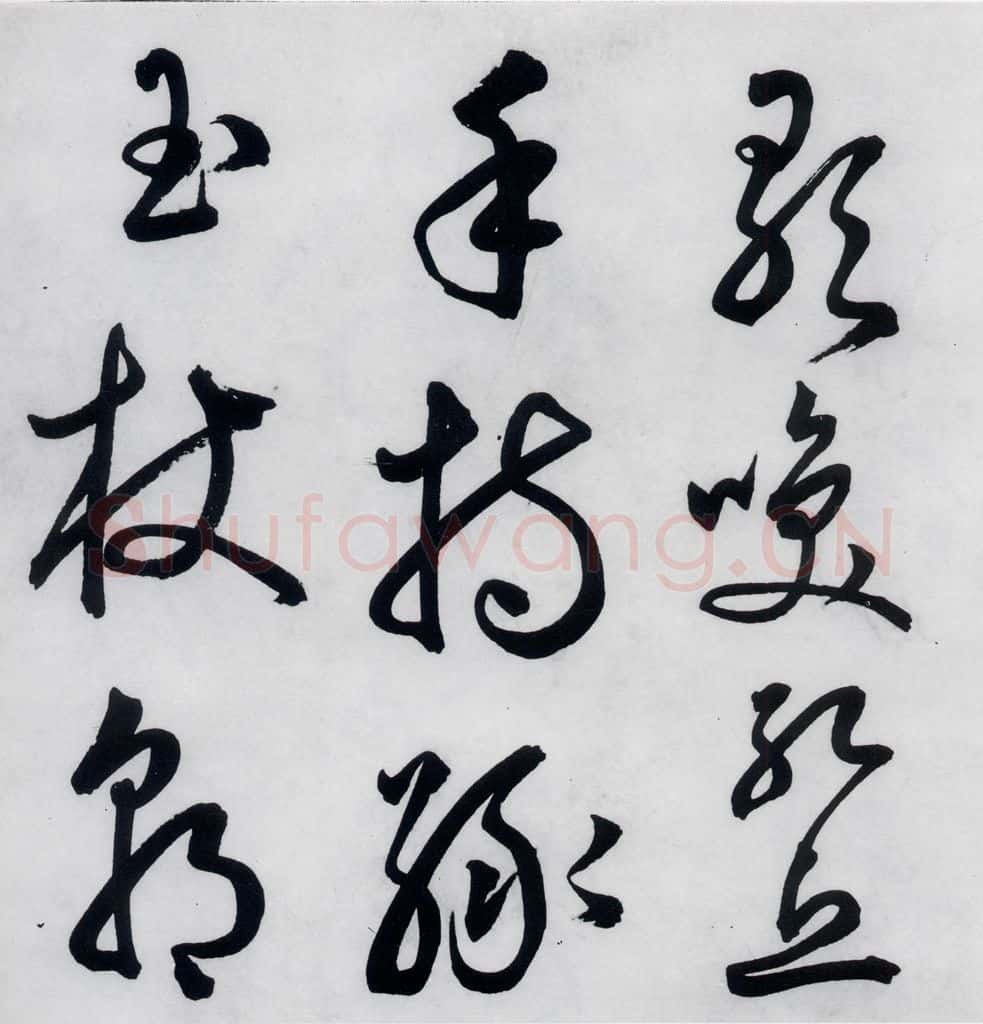 歌咲孔丘
手持綠
玉杖朝
Shufawang.CN